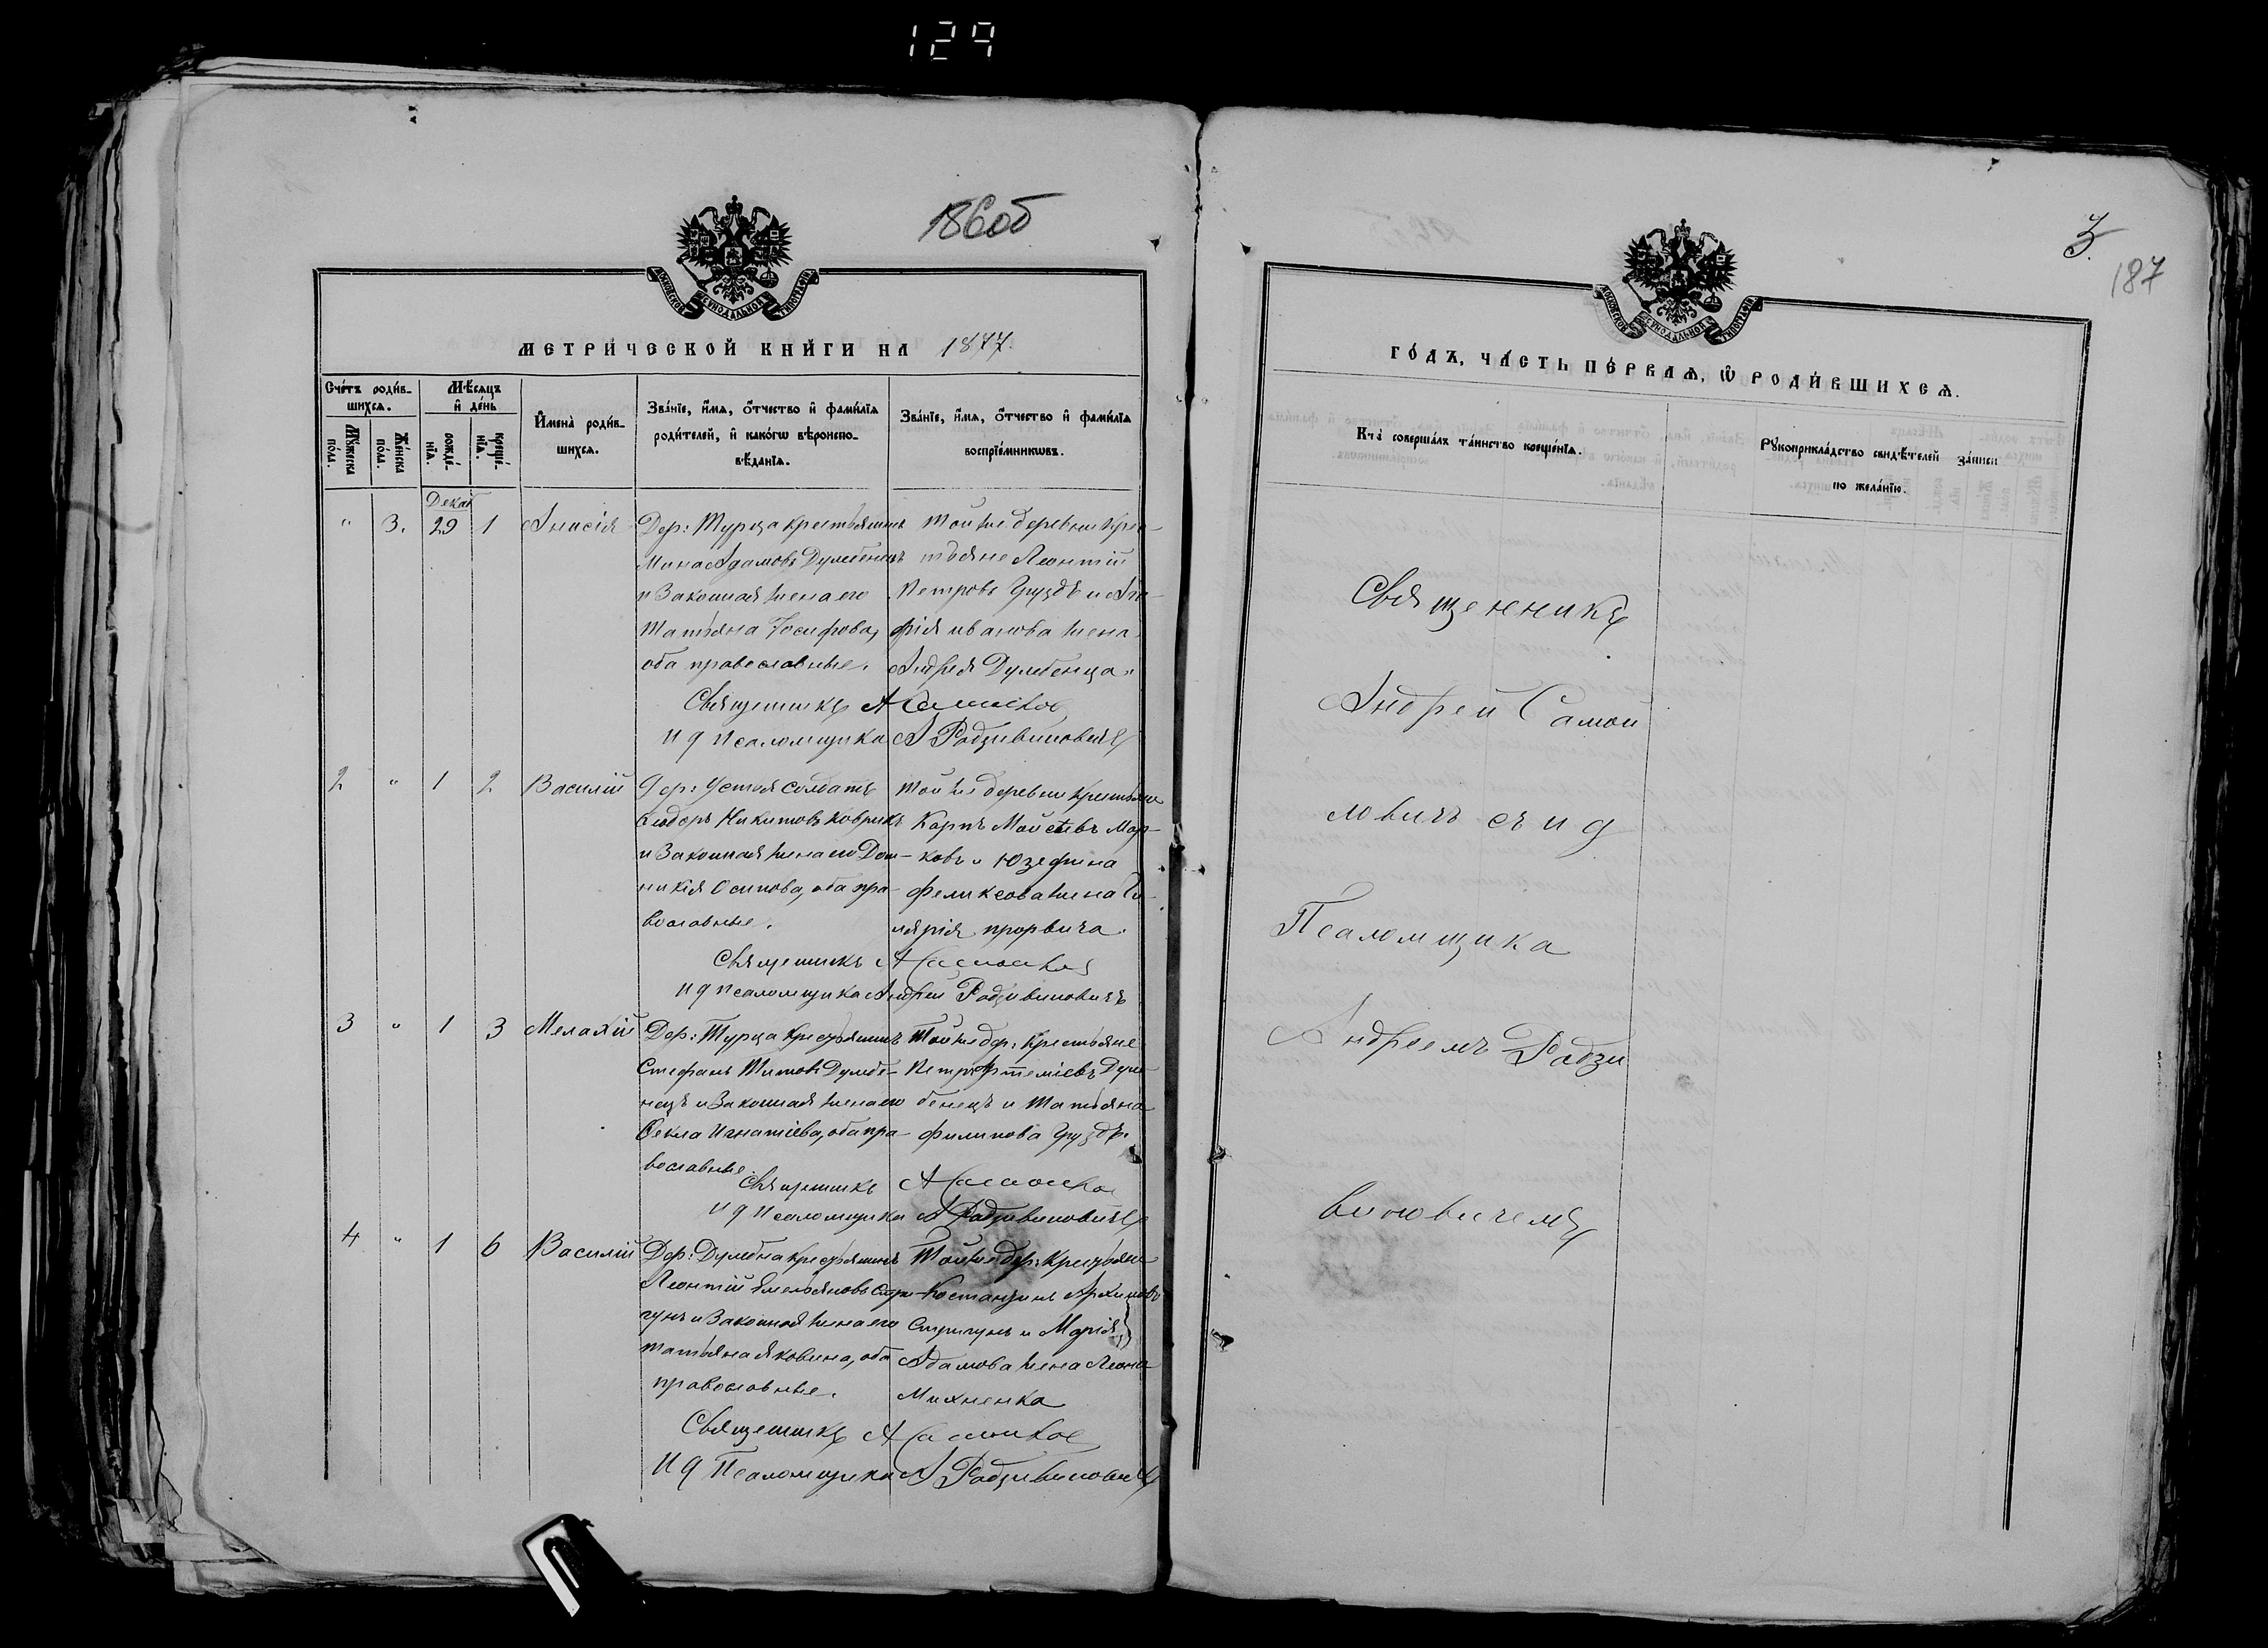 129
186об
3
187
МОСКОВСКОЙ СѴНОДАЛЬНОЙ ТИПОГРАФІИ
МЕТРИ́ЧЕСКОЙ КНИ́ГИ НА 1877.
Сче́тъ роди́вшихсѧ.
Мꙋ́жеска по́ла.
Же́нска по́ла.
Мѣ́сѧцъ и҆ де́нь
рожде́нїѧ.
креще́нїѧ.
И҆мена̀ роди́вшихсѧ.
Зва́нїе, и҆́мѧ, ѻ҆́тчество и҆ фами́лїѧ
роди́телей, и҆ како́гѡ вѣроиспо-
вѣ́данїѧ.
Зва́нїе, и҆́мѧ, ѻ҆́тчество и҆ фами́лїѧ
воспрїе́мникѡвъ.
Декаб
" 3. 29 1 Анисія
Дер: Турца крестьянинъ
Мина Адамовъ Дулебенецъ
и законная жена его
Татьяна Іосифова,
оба православные.
Той же деревни крес-
тьяне Леонтій
Петровъ Груздъ и
фія иванова жена
Андрея Дулебенца.
Священникъ А Самойлов
И д Псаломщика А Радзивиновичъ
2 " 1 2 Василій
Дер: Устоя солдатъ
Сидоръ Никитовъ Коврикъ
и законная жена его Дом-
никія Осипова, оба пра-
вославные.
Той же деревни крестьяне
Карпъ Мойсѣевъ Мар-
ковъ и Юзефина
Феликсова жена
лярія прорвича.
Священникъ А Самойлов
И д Псаломщика Андрей Радзивиновичъ
3 " 1 3 Мелахій
Дер: Турца крестьянинъ
Стефанъ Титовъ Дулебе-
нецъ и законная жена его
Ѳекла Игнатіева, оба пра-
вославные.
Той же дер: крестьяне
Петръ Артеміевъ Дуле-
бенецъ и Татьяна
Филипова Груздъ.
Священникъ А Самойлов
И д Псаломщика А Радзивиновичъ
4 " 1 6 Василій
Дер: Дулебна крестьянинъ
Леонтій Емельяновъ Стри-
гунъ и законная жена его
татьяна яковина, оба
православные.
Той же дер: крестьяне
Костантинъ Архиповъ
Стригунъ и Марія
Адамова жена Леона
Михненка
Священникъ А Самойлов
И д Псаломщика А Радзивиновичъ
МОСКОВСКОЙ СѴНОДАЛЬНОЙ ТИПОГРАФІИ
ГО́ДЪ, ЧА́СТЬ ПЕ́РВАѦ, Ѽ РОДИ́ВШИХСѦ.
Кто̀ соверша́лъ та́инство креще́нїѧ.
Рꙋкоприкла́дство свидѣ́телей за́писи
по жела́нїю.
Священникъ
Андрей Самой
ловичъ съ и д
Псаломщика
Андреемъ Радзи
виновичемъ